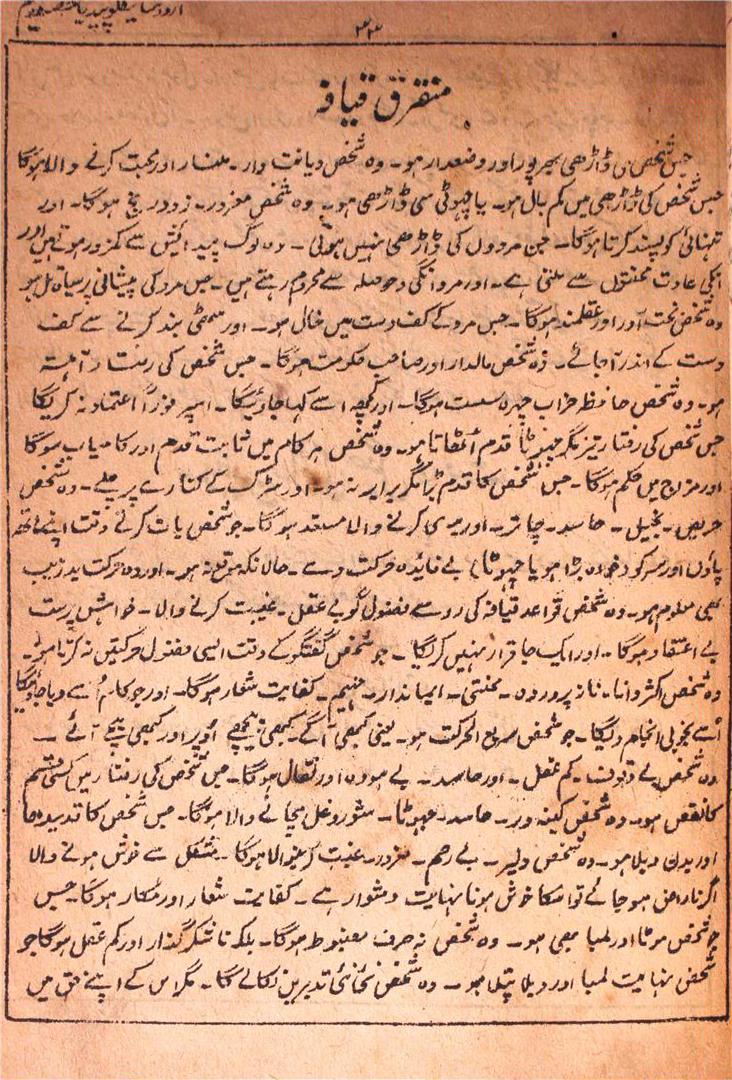 ۳۳
متفرق قیافہ
جس شخص کی ڈاڑھی بھرپور اور وضعدار ہو۔ وہ شخص دیانت وار۔ ملنسار اور محبت کرنے والا ہوگا
جس شخص کی ڈاڑھی میں کم بال ہو۔ یا چھوٹی سی ڈاڑھی ہو۔ وہ شخص مغرور۔ زود رنج ہوگا۔ اور
تنہائی کو پسند کرتا ہوگا۔ جن مردوں کی ڈاڑھی نہیں ہوتی۔ وہ لوگ پیدائش سے کمزور ہوتے ہیں اور
انکی عادت مخنثوں سے ملتی ہے۔ اور مردانگی و حوصلہ سے محروم رہتے ہیں۔ جس مرد کی پیشانی پر سیاہ تل ہو
وہ شخص بخت آور اور عقلمند ہوگا۔ جس مرد کے کف دست میں خال ہو۔ اور مٹھی بند کرنے سے کف
دست کے اندر آ جائے۔ وہ شخص مالدار اور صاحب حکومت ہوگا۔ جس شخص کی رفتار آہستہ
ہو۔ وہ شخص حافظہ خراب چہرہ سست ہوگا۔ اور کچھ اسے کہا جاویگا۔ اسپر فوراً اعتماد نہ کریگا
جس شخص کی رفتار تیز مگر چھوٹا قدم اُٹھاتا ہو۔ وہ شخص ہر کام میں ثابت قدم اور کامیاب ہوگا
اور مزاج میں حکم ہوگا۔ جس شخص کا قدم بڑا مگر برابر نہ ہو۔ اور سڑک کے کنارے پر چلے۔ وہ شخص
حریص۔ بخیل۔ حاسد۔ چاتر۔ اور بدی کرنے والا مستعد ہوگا۔ جو شخص بات کرتے وقت اپنے ہاتھ
پاؤں اور سر کو (خواہ بڑا ہو یا چھوٹا) بے فائدہ حرکت دے۔ حالانکہ موقع نہ ہو۔ اور وہ حرکت بدزیب
بھی معلوم ہو۔ وہ شخص قواعد قیافہ کی رو سے فضول گو بے عقل۔ غیبت کرنے والا۔ خواہش پرست
بے اعتقاد ہوگا۔ اور ایک جا قرار نہیں کریگا۔ جو شخص گفتگو کے وقت ایسی فضول حرکتیں نہ کرتا ہو۔
وہ شخص اکثر دانا۔ ناز پروردہ۔ محنتی۔ ایماندار۔ فہیم۔ کفایت شعار ہوگا۔ اور جو کام اُسے دیا جاویگا
اُسے بخوبی انجام دیگا۔ جو شخص سریع الحرکت ہو۔ یعنی کبھی آگے۔ کبھی پیچھے اُوپر اور کبھی نیچے آئے۔
وہ شخص بے وقوف۔ کم عقل۔ اور حاسد۔ بے ہودہ اور نقال ہوگا۔ جس شخص کی رفتار میں کسی قسم
کا نقص ہو۔ وہ شخص کینہ ور۔ حاسد۔ جھوٹا۔ شوروغل مچانے والا ہوگا۔ جس شخص کا قد سیدھا
اور بدن دبلا ہو۔ وہ شخص دلیر۔ بے رحم۔ مغرور۔ غیبت کرنیوالا ہوگا۔ مشکل سے خوش ہونے والا
اگر ناراض ہو جائے تو اسکا خوش ہونا نہایت دشوار ہے۔ کفایت شعار اور مکار ہوگا۔ جس
جو شخص موٹا اور لمبا بھی ہو۔ وہ شخص نہ صرف مضبوط ہوگا۔ بلکہ ناشکر گذار اور کم عقل ہوگا جو
شخص نہایت لمبا اور دبلا پتلا ہو۔ وہ شخص نئی نئی تدبیریں نکالے گا۔ مگر اس کے اپنے حق میں